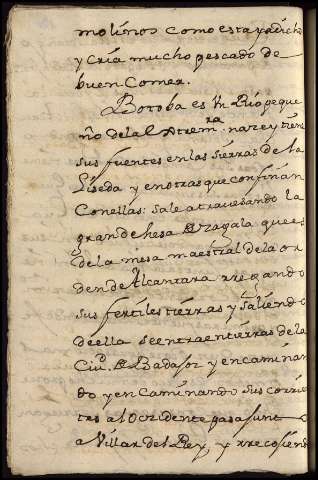 molinos como esta ya dicho
y cria mucho pescado de
buen Comer.
Botoba es Vn Rio peque
ño de la Extrem.ra nace y tiene
sus fuentes en las sierras de la
Liseda y en otras que confinan
Con ellas: sale atravesando la
gran dehesa de Zagala que es
de la mesa maestral de la or
den de Alcantara rregando
sus fertiles tierras y saliendo
de ella se entra en tierras de la
Ciu.d de Badajoz y encaminan
do y encaminando sus corrien
tes al Occidente pasa junto
a Villar del Rey, y rrecosiendo